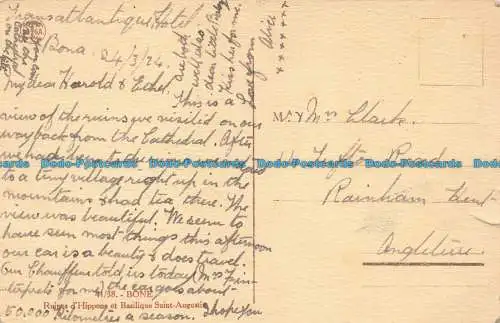 Transatlantique Hotel.
Bona. 24/3/24.
My dear Harold & Ethel,
This is a
view of the ruins we visited on our
way back from the Cathedral. After
we had
to a tiny village right up in the
mountains & had tea there. The
view was beautiful. We seem to
have seen most things this afternoon
our car is a beauty & does travel.
Our Chauffeur told us today (Mrs Fin-
for me) the car goes about
50,000 Kilometres a season. I hope you
are both
well also
dear little Baby
Kiss her for me.
Love from
Alice
x x x x x x
Mr & Mrs Clarke.
Road
Rainham Kent
Angleterre
41/38. - BONE
Ruines d'Hippone et Basilique Saint-Augustin
Dodo-Postcards Dodo-Postcards Dodo-Postcards Dodo-Postcards Dodo-Postcards Dodo-Postcards